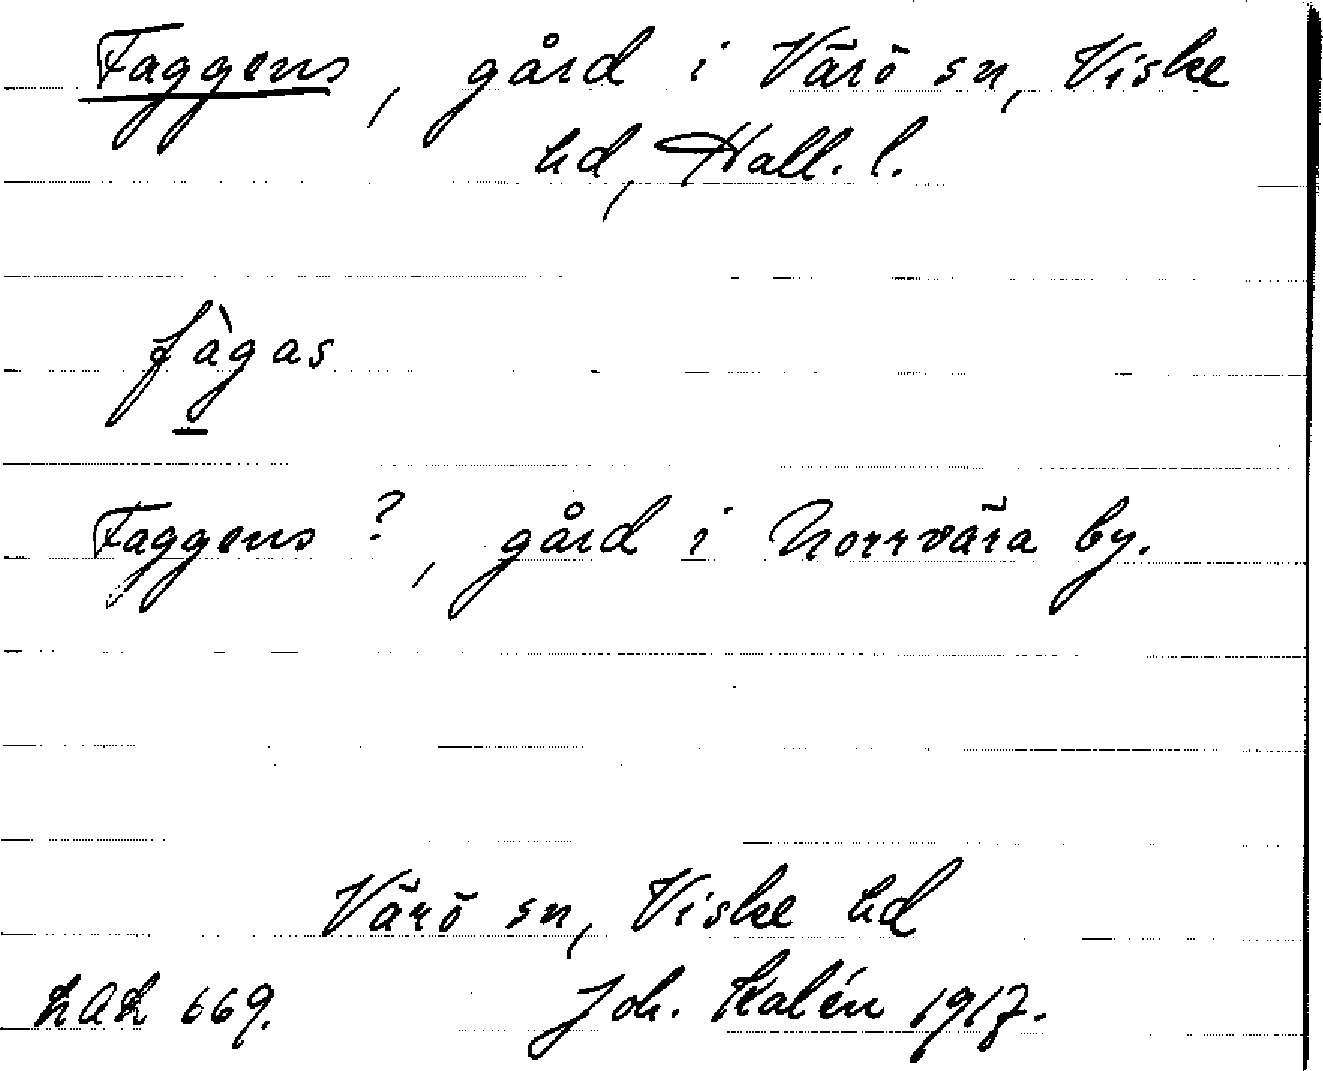 Faggens, gård i Värö sn, Viske
hd, Hall. l.
fàgas
Faggens ?, gård i Norrvära by.
Värö sn, Viske hd
LAL 669. Joh. Kalén 1917.